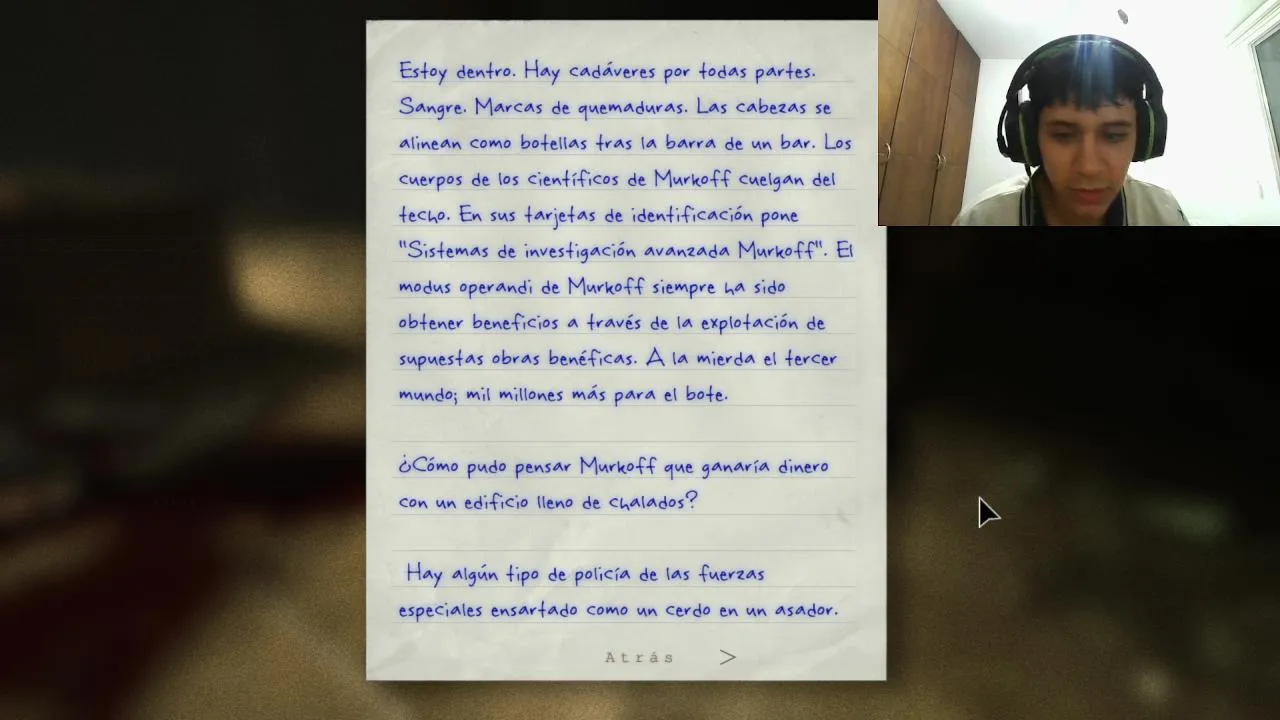 Estoy dentro. Hay cadáveres por todas partes.
Sangre. Marcas de quemaduras. Las cabezas se
alinean como botellas tras la barra de un bar. Los
cuerpos de los científicos de Murkoff cuelgan del
techo. En sus tarjetas de identificación pone
"Sistemas de investigación avanzada Murkoff". El
modus operandi de Murkoff siempre ha sido
obtener beneficios a través de la explotación de
supuestas obras benéficas. A la mierda el tercer
mundo; mil millones más para el bote.
¿Cómo pudo pensar Murkoff que ganaría dinero
con un edificio lleno de chalados?
Hay algún tipo de policía de las fuerzas
especiales ensartado como un cerdo en un asador.
Atrás >